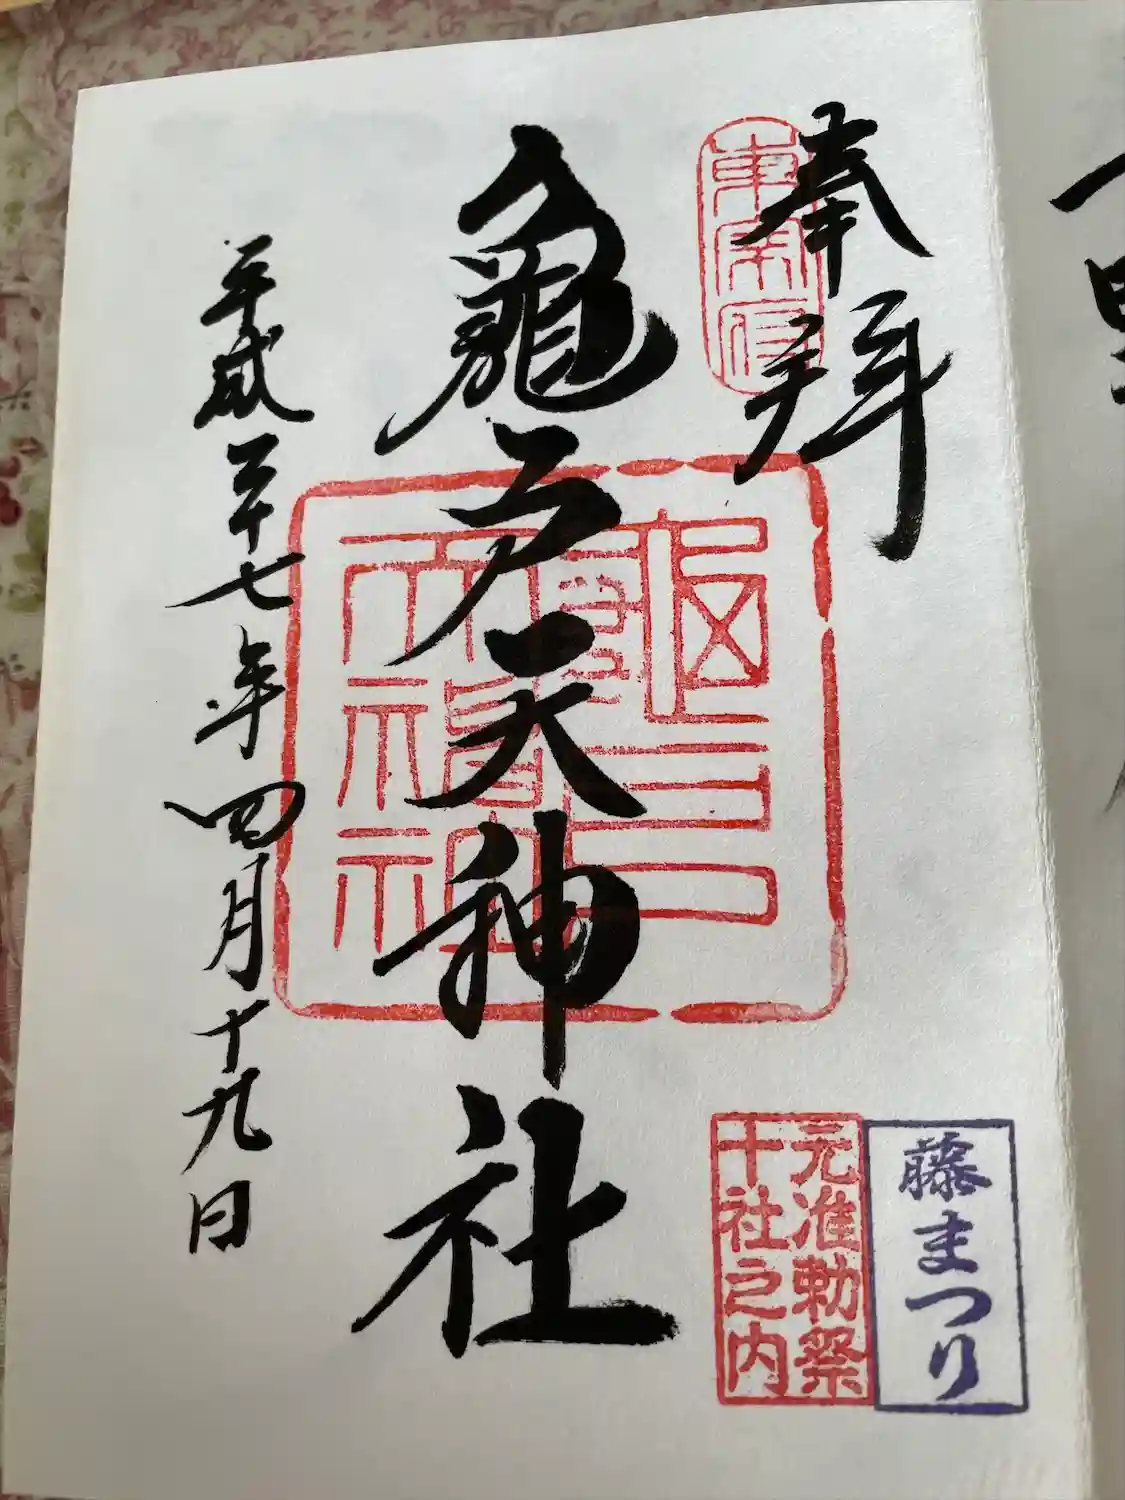 奉拝
東宰府
龜戸天神社
平成二十七年四月十九日
藤まつり
元准勅祭
十社之内